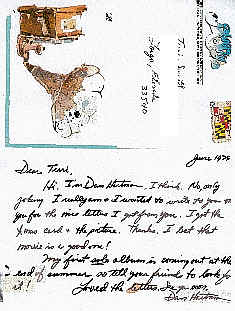 Terri Smith
Florida
33540
June 1979
Dear Terri,
Hi, I'm Dan Hartman I think. No, only
joking I really am & I wanted to write to you
you for the nice letters I got from you. I got the
Xmas card & the picture. Thanks. I bet that
movie is a good one!
My first solo album is coming out at the
end of summer, so tell your friend to look for
it!
Loved the letters.
Dan Hartman